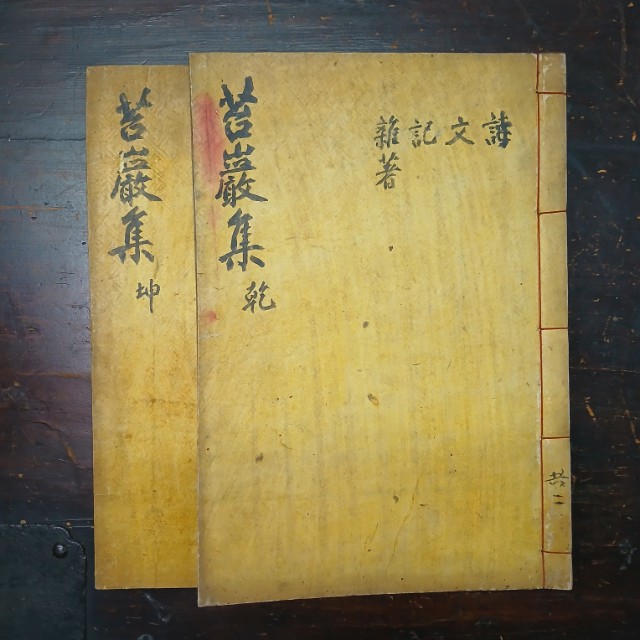 共二
詩
文
記
雜著
苔巖集 乾
苔巖集 坤